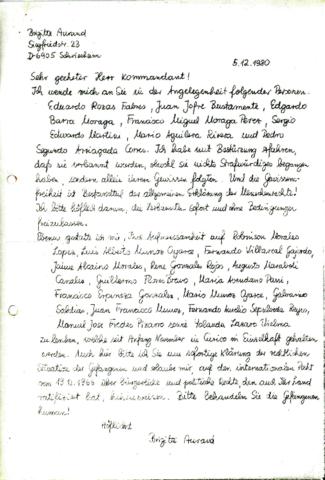 Brigitte Aurand
Siegfriedstr. 23
D-6905 Schriesheim
5.12.1980
Sehr geehrter Herr Kommandant!
Ich wende mich an Sie in der Angelegenheit folgender Personen.
Eduardo Rozas Fabres, Juan Jofre Bustamente, Edgardo
Barra Moraga, Francisco Miguel Moraga Perez, Sergio
Edwardo Martini, Mario Aguilera Rivera und Pedro
Segundo Arriagada. Ich habe mit Bestürzung erfahren,
daß sie verbannt wurden, obwohl sie nichts Strafwürdiges begangen
haben, sondern allein ihrem Gewissen folgten. Und die Gewissens-
freiheit ist Bestandteil der allgemeinen Erklärung der Menschenrechte!
Ich bitte höflich darum, die Verbannten sofort und ohne Bedingungen
freizulassen.
Ebenso gestatte ich mir, Ihre Aufmerksamkeit auf Robinson Morales
Lopez, Luis Alberto Munoz Oyarce, Fernando Villareal Gajardo,
Jaime Alcaino Morales, Rene Gonzales Rojas, Augusto
Canales, Guillermo, Maria
Francisco Espinoza Gonzales, Mario Munoz Oyarce, Galvarino
Saldias, Juan Francisco Munoz, Fernando Aurelio Sepulveda Reyes,
Manuel Jose Fredes Pizarro sowie Yolanda Lazaro
zu lenken, welche seit Anfang November in Curico in Einzelhaft gehalten
werden. Auch hier bitte ich Sie um sofortige Klärung der rechtlichen
Situation der Gefangenen und erlaube mir, auf den internationalen Pakt
vom 19.12.1966 über bürgerliche und politische Rechte, den auch Ihr Land
ratifiziert hat, hinzuweisen. Bitte behandeln Sie die Gefangenen
human!
Höflichst
Brigitte Aurand